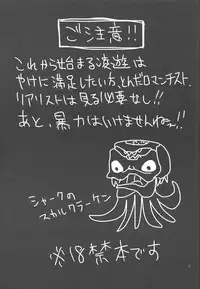 ご注意!!
これから始まる凌遊は
やけに満足したい方、とんだロマンチスト、
リアリストは見る必要なし!!
あと、暴力はいけませんわよ!!
シャークの
スカルクラーケン
※18禁本です